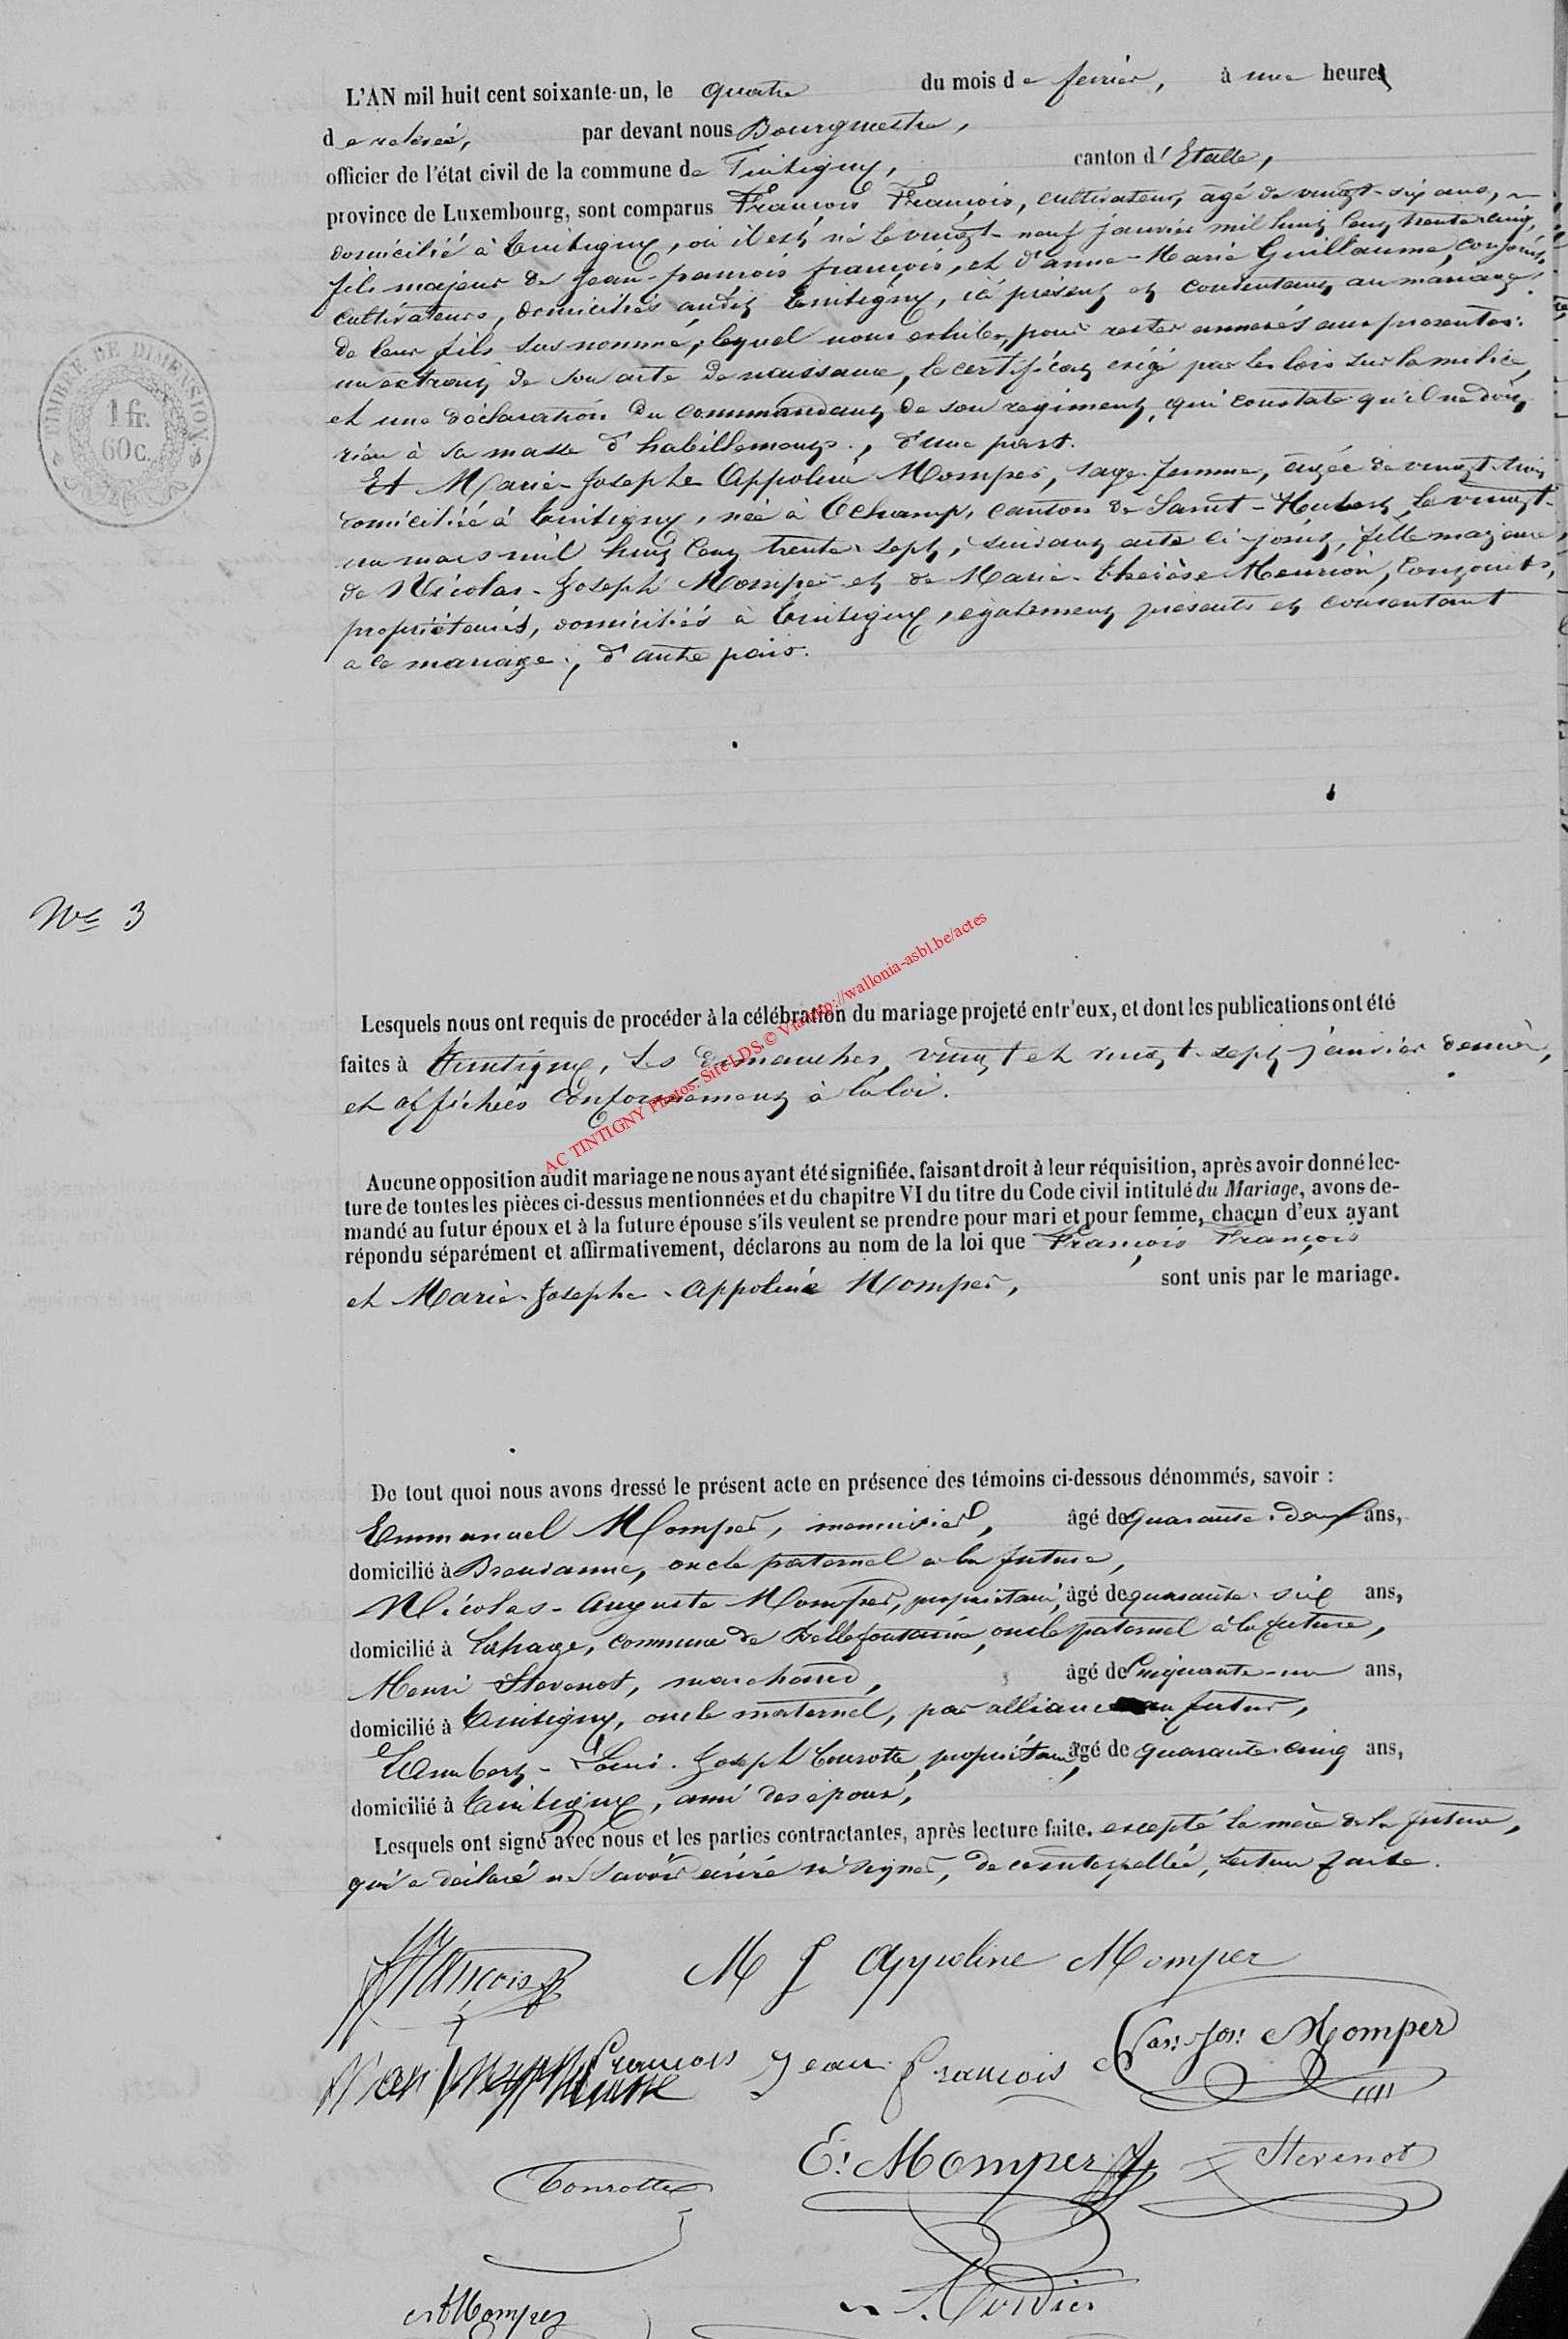 L'AN mil huit cent soixante-un, le quatre du mois de fevrier, à une heure
de relevée, par devant nous Bourgmestre,
officier de l'état civil de la commune de Tintigny, canton d'Etalle,
province de Luxembourg, sont comparus François François, cultivateur, âgé de vingt-six ans,
domicilié à Tintigny, où il est né le vingt-neuf janvier mil huit cent trente cinq,
fils majeur de Jean-françois françois, et d'anne-Marie Guillaume, conjoints,
cultivateurs, domiciliés audit Tintigny, ici présent et consentant au mariage
de leur fils sus nommé, lequel nous exhibe, pour rester annexés aux présentes:
un extrait de son acte de naissance, le certificat exigé par les lois sur la milice,
et une déclaration du commandant de son regiment, qui constate qu'il ne doit
rien à sa masse d'habillement, d'une part.
Et Marie-Josephe Appoline Momper, sage-femme, âgée de vingt-trois
domiciliée à Tintigny, née à Ochamp, canton de Saint-Hubert, le vingt-
un mars mil huit cent trente-sept, suivant acte ci-joint, fille majeure,
de Nicolas-Joseph Momper et de Marie-Thérèse Meurion, conjoints,
propriétaires, domiciliés à Tintigny, également présents et consentant
a ce mariage, d'autre part.
TIMBRE DE DIMENSION
1 fr.
60 c.
No 3
Lesquels nous ont requis de procéder à la célébration du mariage projeté entr'eux, et dont les publications ont été
faites à Tintigny, les dimanches, vingt et vingt-sept janvier dernier,
et affichées conformément à la loi.
AC TINTIGNY Photos: Site LDS © Via http://wallonia-asbl.be/actes
Aucune opposition audit mariage ne nous ayant été signifiée, faisant droit à leur réquisition, après avoir donné lec-
ture de toutes les pièces ci-dessus mentionnées et du chapitre VI du titre du Code civil intitulé du Mariage, avons de-
mandé au futur époux et à la future épouse s'ils veulent se prendre pour mari et pour femme, chacun d'eux ayant
répondu séparément et affirmativement, déclarons au nom de la loi que François François
et Marie-Josephe-Appoline Momper, sont unis par le mariage.
De tout quoi nous avons dressé le présent acte en présence des témoins ci-dessous dénommés, savoir :
Emmanuel Momper, menuisier, âgé de quarante-deux ans,
domicilié à Breuvanne, oncle paternel a la future,
Nicolas-Auguste Momper, propriétaire, âgé de quarante-six ans,
domicilié à Lahage, commune de Bellefontaine, oncle paternel à la future,
Henri Stevenot, marchand, âgé de cinquante-un ans,
domicilié à Tintigny, oncle maternel, par alliance au futur,
Lambert-Louis-Joseph Tourotte, propriétaire, âgé de quarante-cinq ans,
domicilié à Tintigny, ami des époux,
Lesquels ont signé avec nous et les parties contractantes, après lecture faite. excepté la mère de la future,
qui a déclaré ne savoir écrire ni signer, de ce interpellée, lecture faite.
François M J Appoline Momper
françois Jean françois Jos: Momper
E: Momper Stevenot
Tourotte
Momper